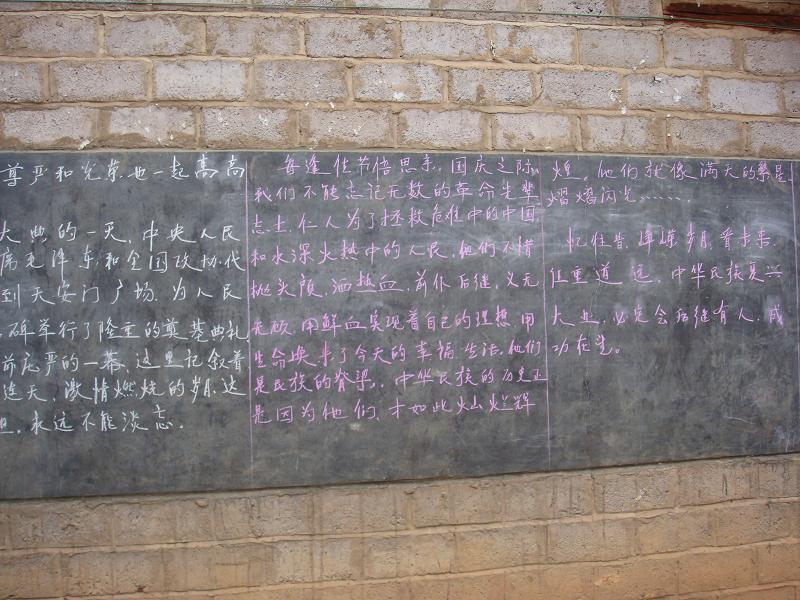 尊严和光荣也一起高高
大典的一天，中央人民
席毛泽东和全国政协代
到天安门广场，为人民
碑举行了隆重的奠基典礼
前庄严的一幕，这里记叙着
连天，激情燃烧的岁月，这
永远不能淡忘。
每逢佳节倍思亲，国庆之际，
我们不能忘记无数的革命先辈、
志士、仁人为了拯救危难中的中国
和水深火热中的人民，他们不惜
抛头颅，洒热血，前仆后继，义无
反顾，用鲜血实现着自己的理想，用
生命换来了今天的幸福生活。他们
是民族的脊梁，中华民族的历史正
是因为他们，才如此灿烂辉
煌。他们就像满天的繁星，
熠熠闪光……
忆往昔，峥嵘岁月，看未来，
任重道远，中华民族复兴
大业，必定会后继有人，成
功在先。